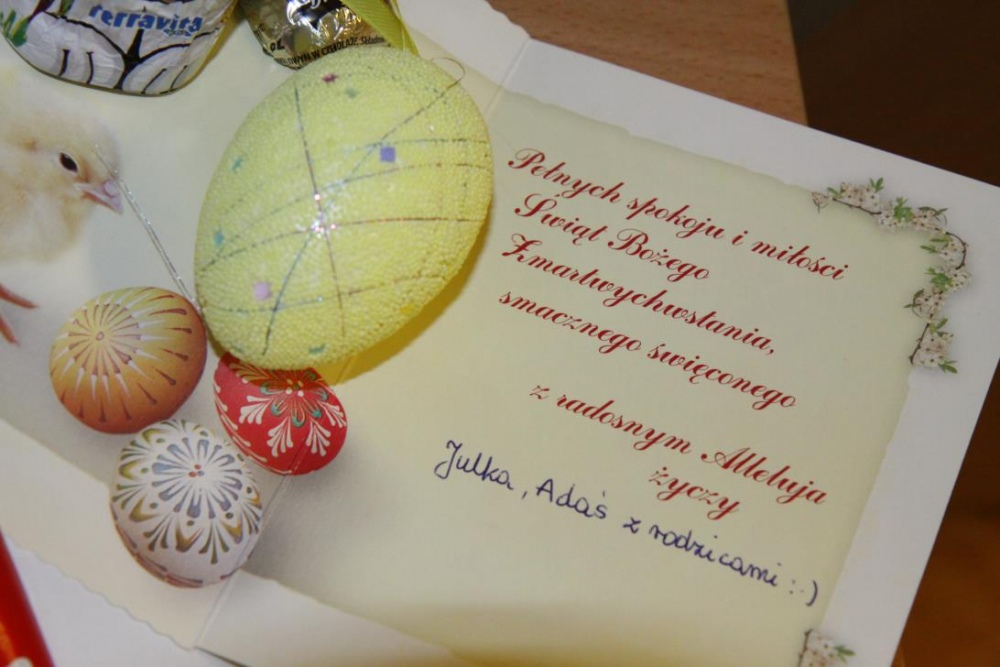 terravita
Pełnych spokoju i miłości
Świąt Bożego
Zmartwychwstania,
smacznego święconego
z radosnym Alleluja
życzy
Julka, Adaś z rodzicami :-)